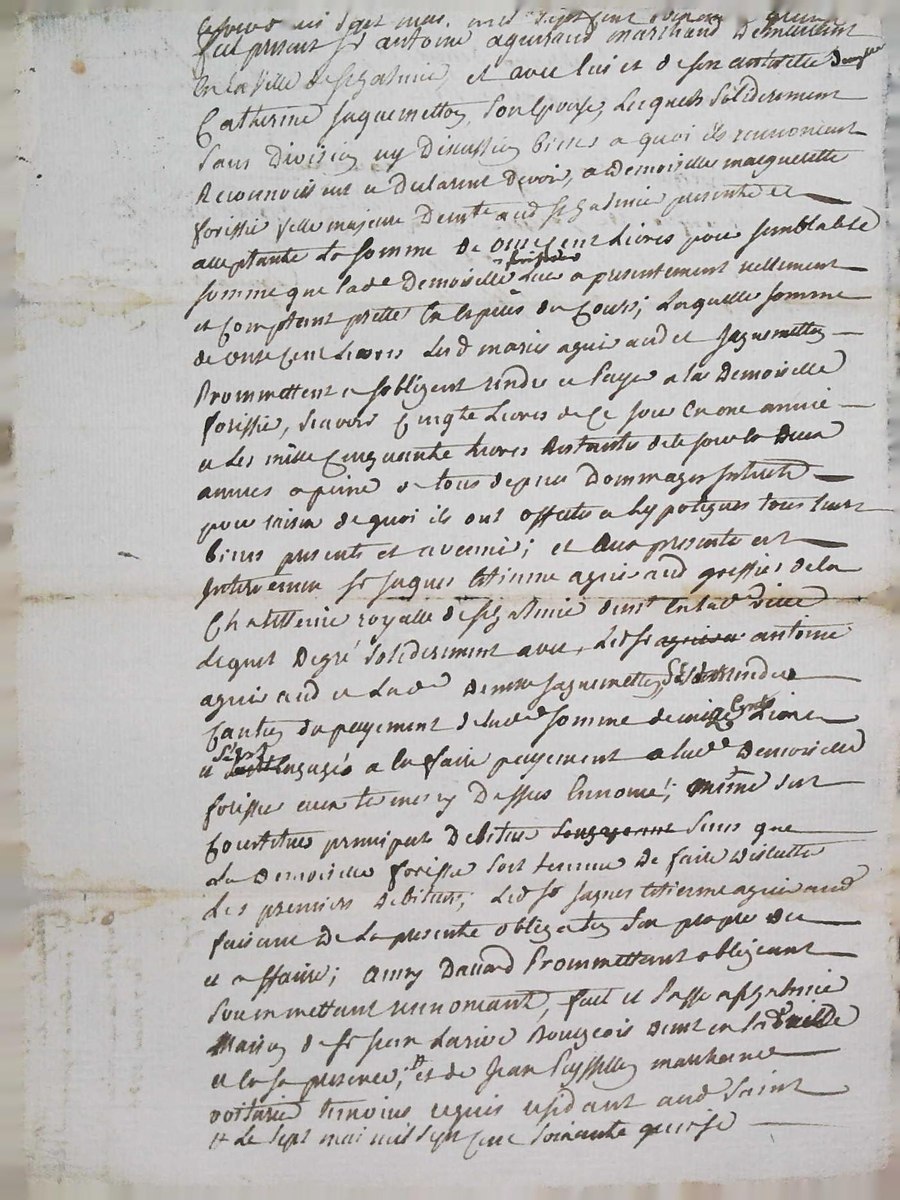 fut present sr antoine aguiraud marchand demeurant
en la ville de st galmier et avec lui et de son authorité demlle
Catherine Jaquemetton son epouse, lesquels solidairement
sans division ny discussion de biens a quoi ils renoncent
Reconnoissent et declarent devoir, a Demoiselle marguerite
forissier fille majeure demte aud st galmier presente et
acceptante la somme de onze cent Livres pour semblable
somme que lade Demoiselle forissier leur a presentement reellement
et comptant pretté en espèces du cours; laquelle somme
de onze cent Livres lesd mariés aguiraud et Jaquemetton
Promettent et sobligent rendre et payer a lad Demoiselle
forissier, scavoir Cinqte Livres de ce jour en une année
et les mille Cinquante Livres restantes de ce jour en deux
années a peine de tous depens dommages interets
pour raison de quoi ils ont affecté et hypotequé tous leurs
biens presents et avenir; et aux presentes est
intervenu sr Jaques Etienne aguiraud greffier de la
Chatellenie royalle de st galmier demt en lade ville
lequel de gré solidairement avec led sr antoine
aguiraud et lade demlle Jaquemetton rendu
Caution du payement de lade somme de onze Cent Livres
et s'est engagé a la faire payement a lade Demoiselle
forissier aux termes cy dessus ennoncé; même s'est
constitué principal debiteur sans que
la Demoiselle forissier soit tenue de faire discuter
les premiers debiteurs; led sr Jaques Etienne aguiraud
faisant de la presente obligation son propre du
et affaire; ainsy Daccord Promettant obligeant
soumettant renonceant, fait et Passé a st galmier
Maison de sr Jean Larive Bourgeois demt en lad ville
et en sa presence; et de Jean Peyssellon marchand
voiturier temoins requis residant aud Saint
le sept mai mil sept cent soixante quinze